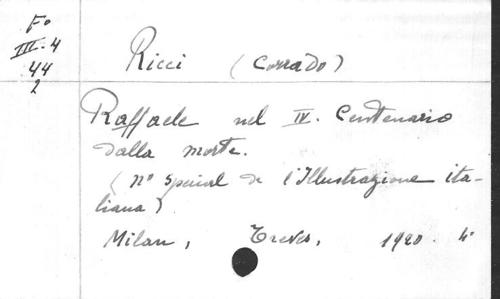 Fo
III. 4
44
2
Ricci (Corrado)
Raffaele nel IV. Centenario
dalla morte.
(no spécial de l'Illustrazione ita-
liana)
Milan, Treves, 1920. 4o